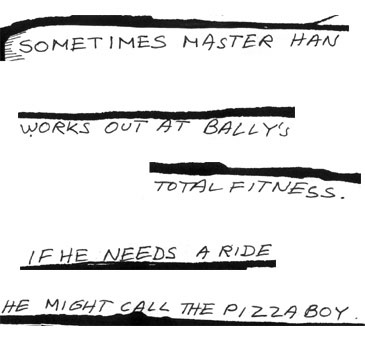 SOMETIMES MASTER HAN
WORKS OUT AT BALLY'S
TOTAL FITNESS.
IF HE NEEDS A RIDE
HE MIGHT CALL THE PIZZA BOY.